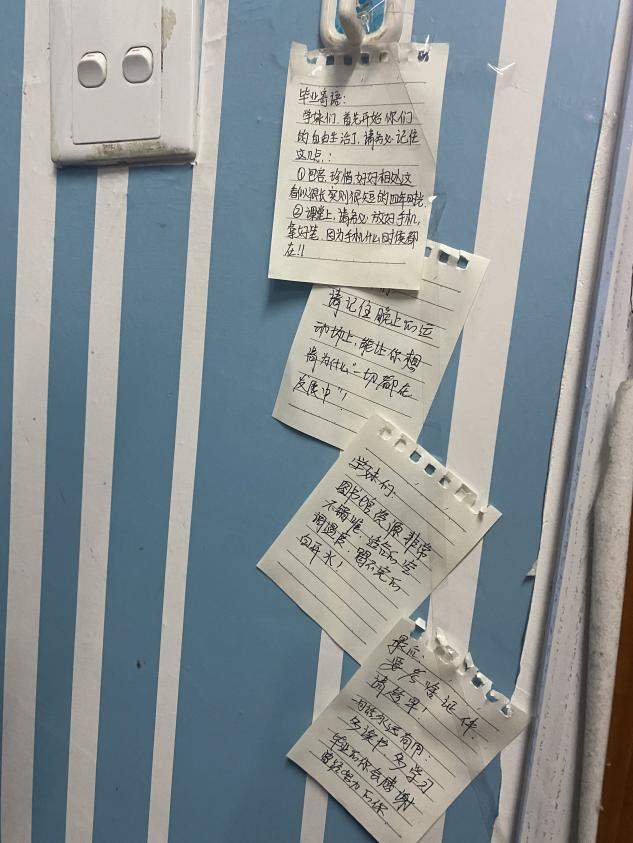 毕业寄语：
学妹们，首先开始你们
的自由生活了，请务必记住
这几点：
①思容，珍惜好好相处这
看似很长实则很短的四年时光
②课堂上，请务必放好手机，
拿好笔，因为手机什么时候都
在!!
请记住晚上的运
动场上，能让你想
尚为什么"一切都在
发展中"！
学妹们：
图书馆资源非常
不错哦，适宜的空
调温度，喝不完的
白开水！
最后：
要考啥证件，
请趁早！
有些永远有用：
多读书，多学习
毕业的你会感谢
曾经努力的你